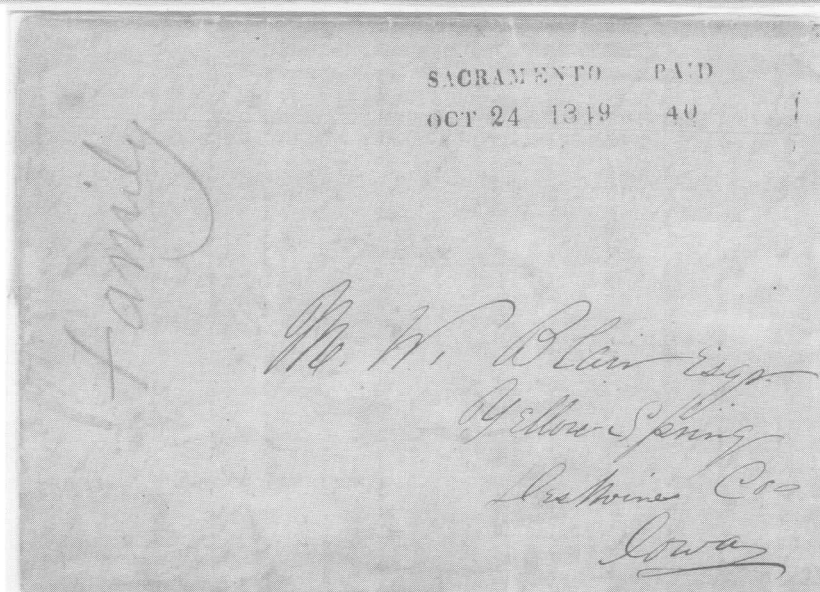 SACRAMENTO PAID
OCT 24 1849 40
Family
M. W. Blair Esqr.
Yellow Spring
Des Moines Co
Iowa